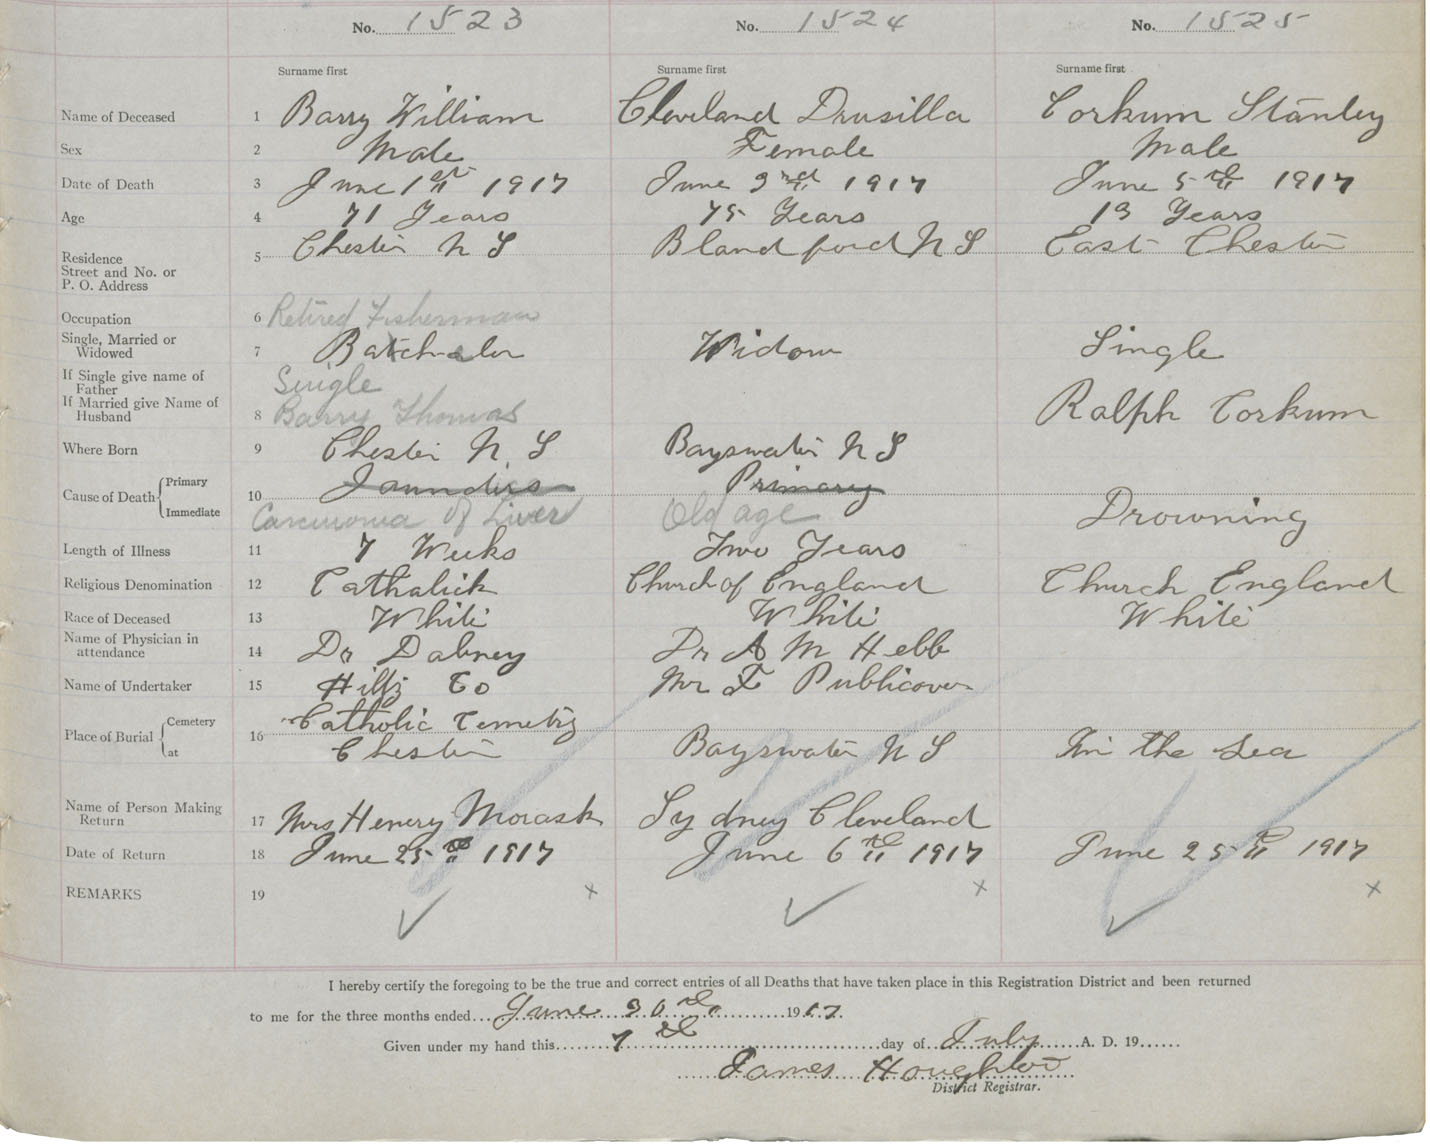 No. 1523 No. 1524 No. 1525
Surname first Surname first Surname first
Name of Deceased 1 Barry William Cleveland Drusilla Corkum Stanley
Sex 2 Male Female Male
Date of Death 3 June 1st 1917 June 3rd 1917 June 5th 1917
Age 4 71 Years 75 Years 13 Years
Residence Street and No. or P. O. Address 5 Chester N S Blandford N S East Chester
Occupation 6 Retired Fisherman
Single, Married or Widowed 7 Batchalor Widow Single
If Single give name of Father Single
If Married give Name of Husband 8 Barry Thomas Ralph Corkum
Where Born 9 Chester N. S Bayswater N S
Cause of Death Primary 10 Jaundirs Primary
Immediate Carcinoma of Liver Old age Drowning
Length of Illness 11 7 Weeks Two Years
Religious Denomination 12 Cathalick Church of England Church England
Race of Deceased 13 White White White
Name of Physician in attendance 14 Dr Dabney Dr A M Hebb
Name of Undertaker 15 Hiltz Co Mr F Publicover
Place of Burial Cemetery 16 Catholic Cemetry
at Chester Bayswater N S In the Sea
Name of Person Making Return 17 Mrs Henery Morask Sydney Cleveland
Date of Return 18 June 25th 1917 June 6th 1917 June 25th 1917
REMARKS 19 x x x
I hereby certify the foregoing to be the true and correct entries of all Deaths that have taken place in this Registration District and been returned
to me for the three months ended June 30th 1917.
Given under my hand this 7th day of July A. D. 19......
James Houghton
District Registrar.